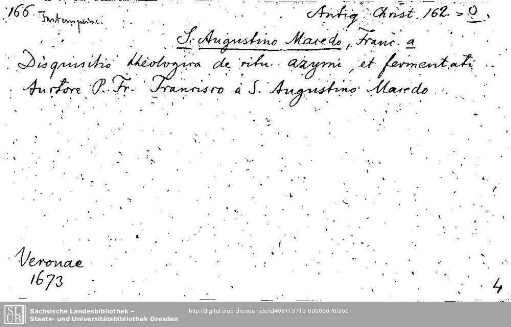 166 Antiq. Christ. 162 = 0.
S. Augustino Macedo, Franc. a
Disquisitio theologica de ritu azymi, et fermentati
Auctore P. Fr. Francisco à S. Augustino Macedo
Veronae
1673
4
Sächsische Landesbibliothek –
Staats- und Universitätsbibliothek Dresden